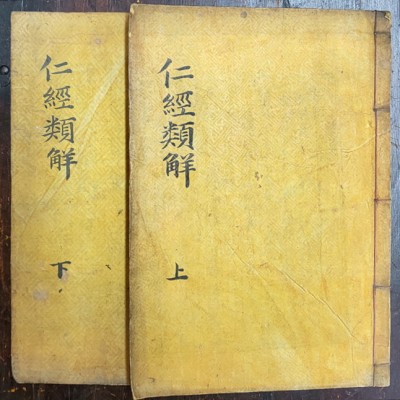 仁經類觧
上
仁經類觧
下